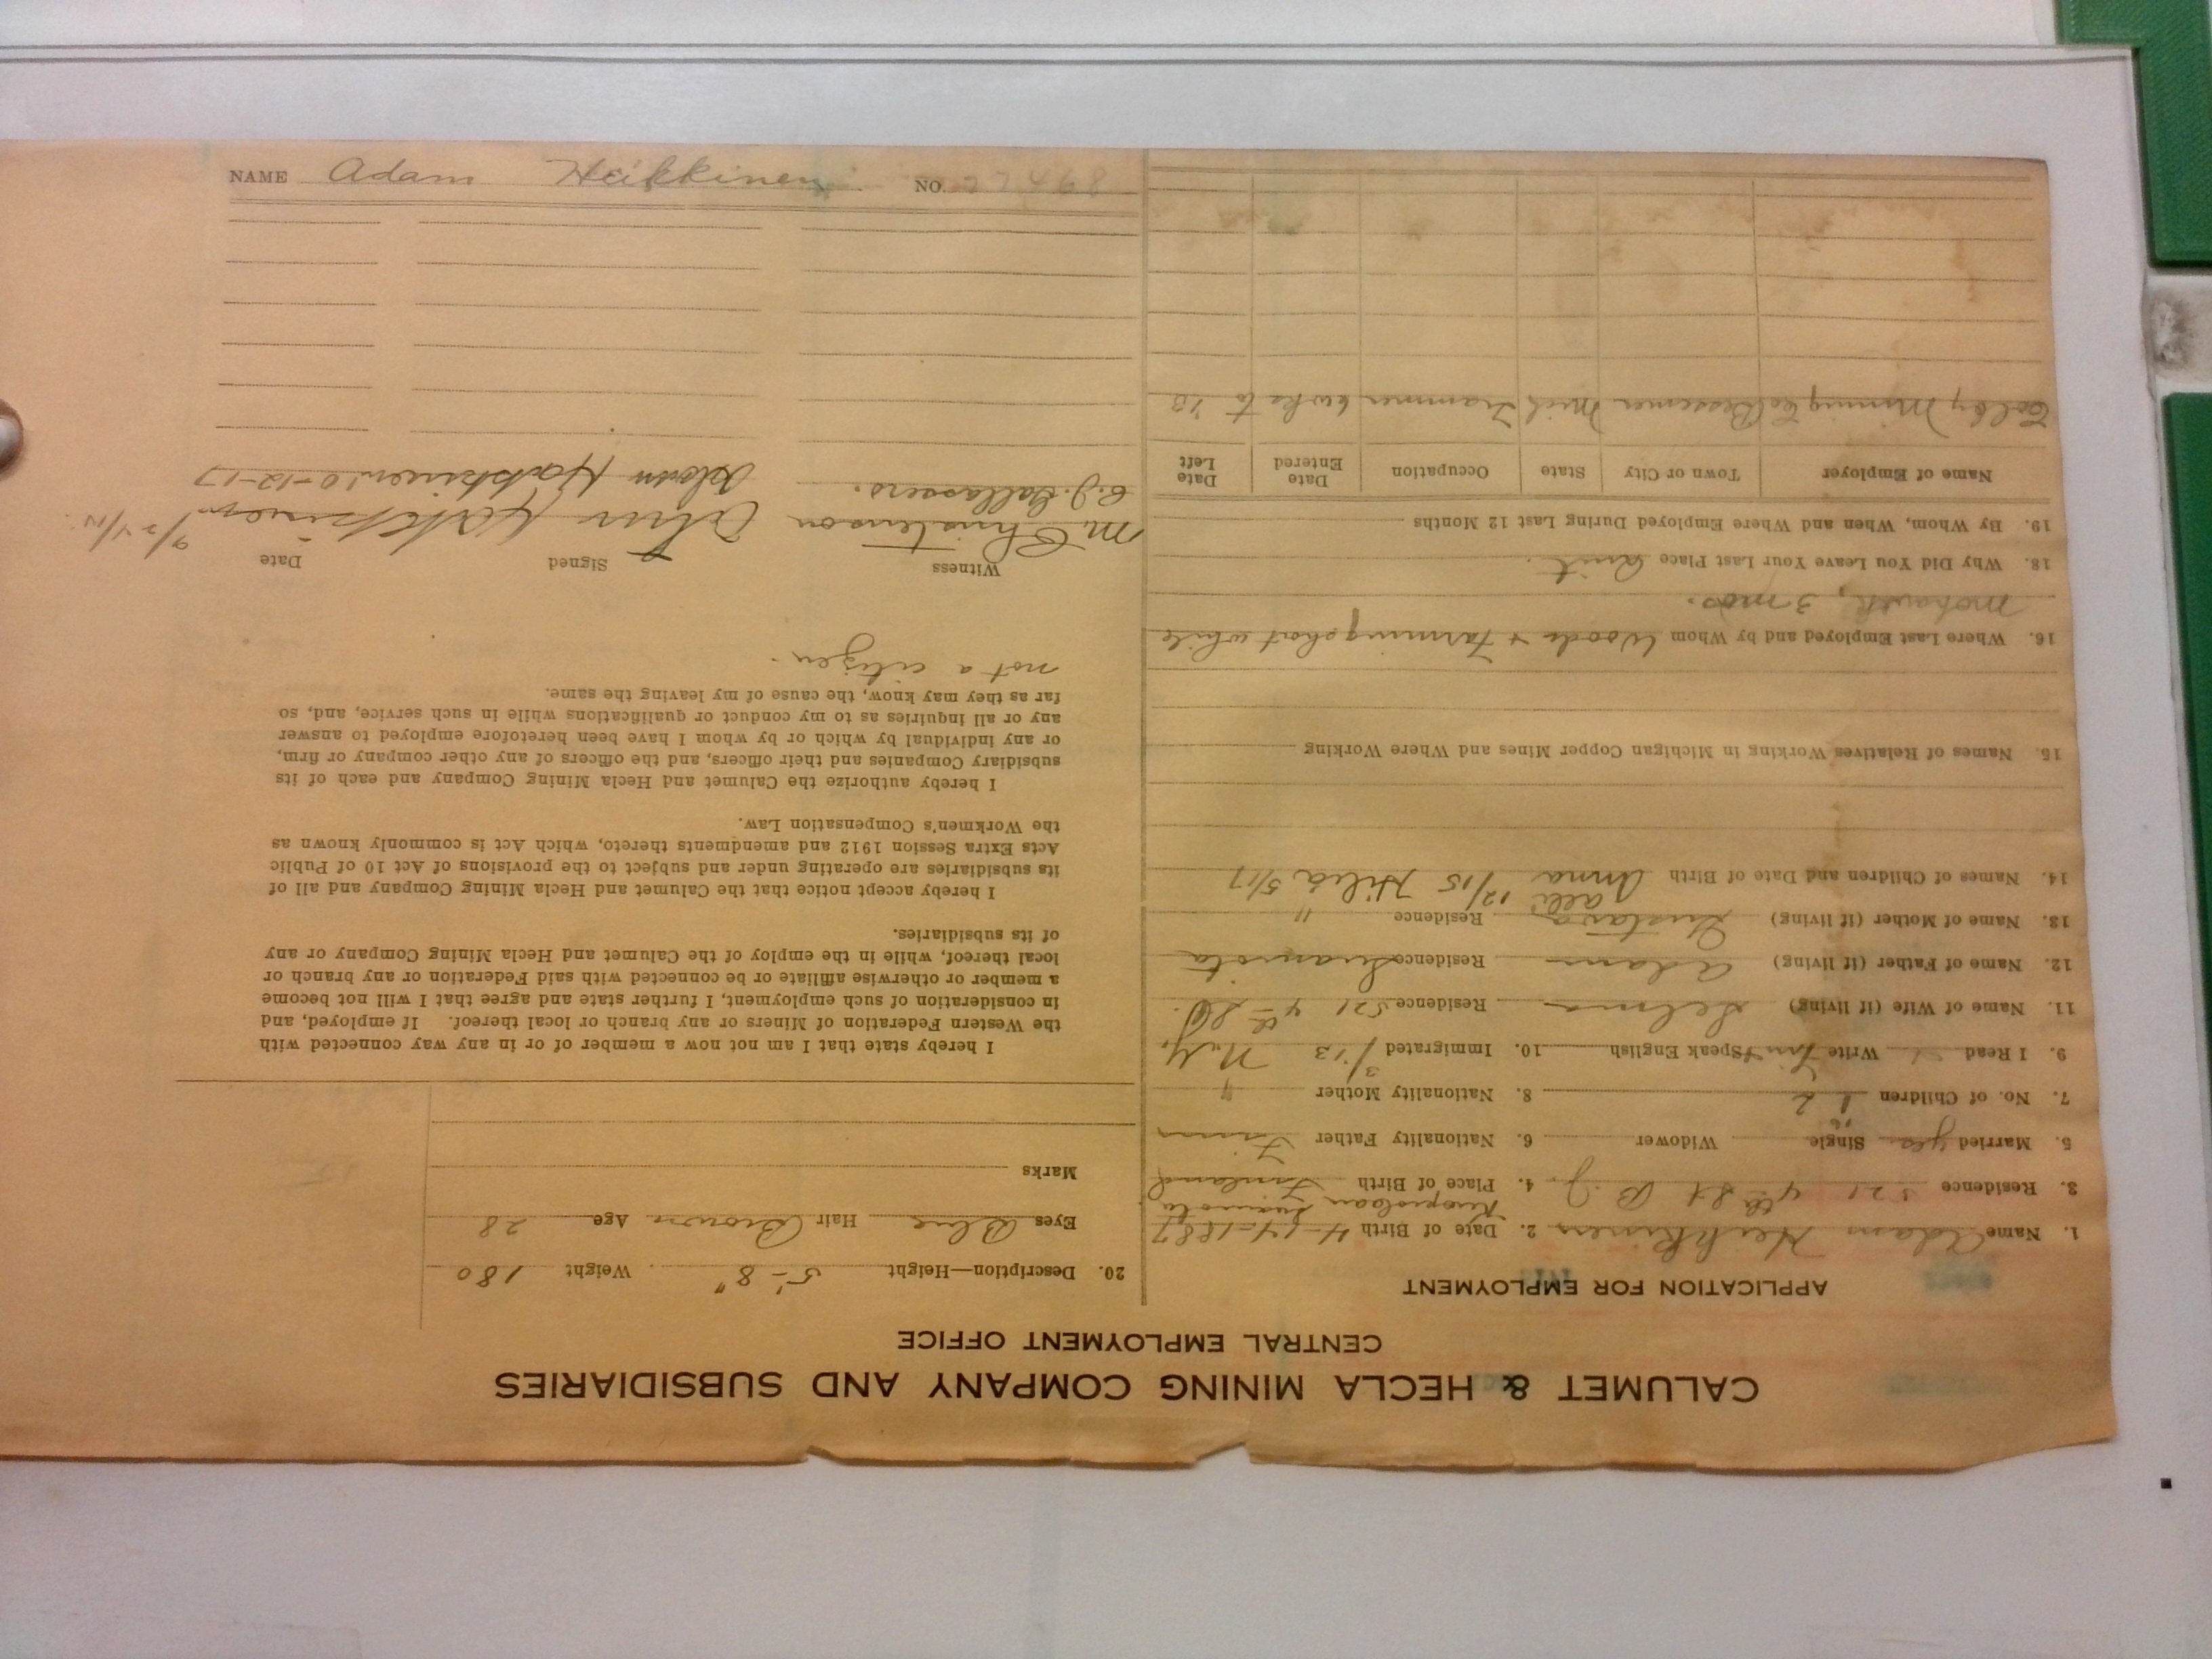 NAME Adam Heikkinen NO.
CALUMET & HECLA MINING COMPANY AND SUBSIDIARIES
CENTRAL EMPLOYMENT OFFICE
APPLICATION FOR EMPLOYMENT
1. Name Adam Heikkinen 2. Date of Birth 4-14-1887
3. Residence 521 4th St B. J. 4. Place of Birth Finland
5. Married yes Single Widower 6. Nationality Father Finn
7. No. of Children 1 2 8. Nationality Mother "
9. I Read Write Finn Speak English 10. Immigrated 3/13 N.Y.
11. Name of Wife (if living) Selma Residence 521 4th St.
12. Name of Father (if living) Adam Residence
13. Name of Mother (if living) Gustava Residence "
14. Names of Children and Date of Birth Anna 12/15 Hilia 5/17
15. Names of Relatives Working in Michigan Copper Mines and Where Working
16. Where Last Employed and by Whom Woods + Farming short while
Mohawk, 3 mos.
18. Why Did You Leave Your Last Place Quit.
19. By Whom, When and Where Employed During Last 12 Months
Name of Employer Town or City State Occupation Date Entered Date Left
Colby Mining Co Bessemer Mich Trammer 6 wks to
20. Description—Height 5'-8" Weight 180
Eyes Blue Hair Brown Age 28
Marks
I hereby state that I am not now a member of or in any way connected with
the Western Federation of Miners or any branch or local thereof. If employed, and
in consideration of such employment, I further state and agree that I will not become
a member or otherwise affiliate or be connected with said Federation or any branch or
local thereof, while in the employ of the Calumet and Hecla Mining Company or any
of its subsidiaries.
I hereby accept notice that the Calumet and Hecla Mining Company and all of
its subsidiaries are operating under and subject to the provisions of Act 10 of Public
Acts Extra Session 1912 and amendments thereto, which Act is commonly known as
the Workmen's Compensation Law.
I hereby authorize the Calumet and Hecla Mining Company and each of its
subsidiary Companies and their officers, and the officers of any other company or firm,
or any individual by which or by whom I have been heretofore employed to answer
any or all inquiries as to my conduct or qualifications while in such service, and, so
far as they may know, the cause of my leaving the same.
not a citizen.
Witness Signed Date
M. Christenson
10-12-17